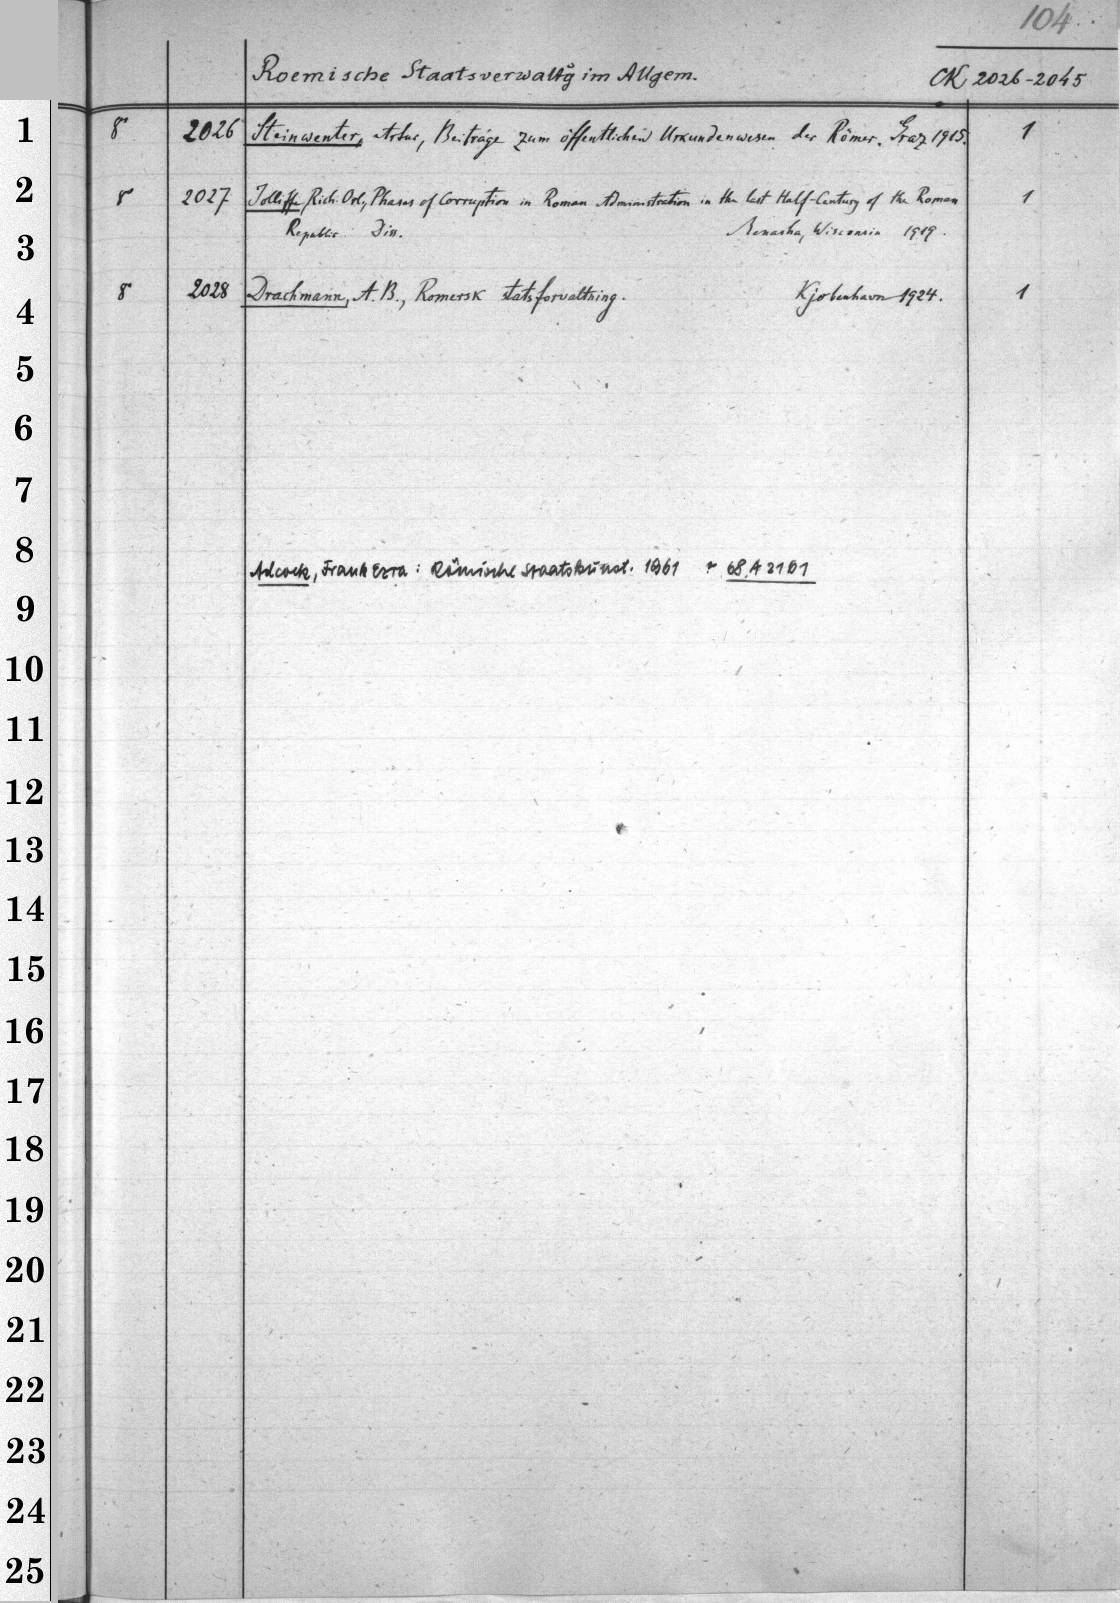 104
Roemische Staatsverwaltg im Allgem. CK 2026-2045
1 8° 2026 Steinwenter, Artur, Beiträge zum öffentlichen Urkundenwesen der Römer. Graz 1915. 1
2 8° 2027 Jolliffe, Rich. Orl., Phases of Corruption in Roman Administration in the last Half-Century of the Roman 1
3 Republic Diss. Menasha, Wisconsin 1919.
4 8° 2028 Drachmann, A. B., Romersk Statsforvaltning. Kjobenhavn 1924. 1
5
6
7
8
Adcock, Frank Ezra: Römische Staatskunst. 1961
9
10
11
12
13
14
15
16
17
18
19
20
21
22
23
24
25